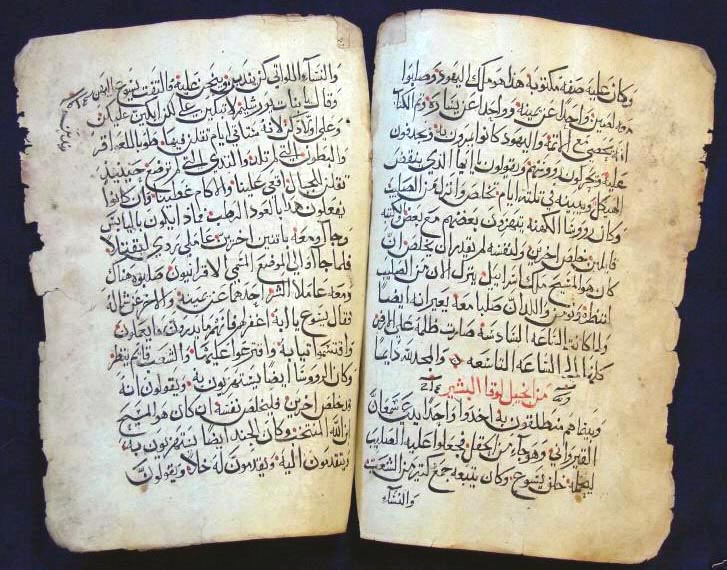 وكان عليه صفه مكتوبه هذا هو ملك اليهود وصلبوا
معه لصين واحدا عن يمينه وواحدا عن يساره وتم الكتاب
انه يحصى مع الاثمة واليهود كانوا يمرون به ويجدفون
عليه ويحركون رووسهم ويقولون ايها الذي ينقض
الهيكل ويبنيه في ثلثه ايام تخلص وانزل من الصليب
وكان رووسا الكهنه يتهزون بعضهم مع بعض والكتبه
قايلين خلص اخرين ولنفسه لم يقدر ان يخلص ان
كان هو المسيح ملك اسراييل ينزل الان من الصليب
لننظره ونومن واللذان صلبا معه يعيرانه ايضا
ولما كانت الساعه السادسه صارت ظلمه على الارض
كلها الى الساعه التاسعه والمجد لله دايما
من انجيل لوقا البشير
وبينما هم منطلقون به اخذوا واحدا يدعى سمعان
القيرواني وهو جاء من الحقل فجعلوا عليه الصليب
ليحمله خلف يسوع وكان يتبعه جمع كثير من الشعب
والنساء
والنساء اللواتي كن يندبن وينحن عليه والتفت يسوع اليهن
وقال يا بنات يروشليم لا تبكين علي لكن ابكين عليكن
وعلى اولادكن لانه ستاتي ايام تقلن فيها طوبا للعواقر
والبطون التي لم تلد والثدي التي لم ترضع حينيذ
تقلن للجبال اقعي علينا والاكام غطينا وان كانوا
يفعلون هذا بالعود الرطب فماذا يكون باليابس
وجاوا معه باثنين اخرين عاملي ردي ليقتلا
فلما جاوا الى الموضع المسمى الاقرانيون صلبوه هناك
ومعه عاملا الشر احدهما عن يمينه والاخر عن شماله
فقال يسوع يا ابه اغفر لهم فانهم ما يدرون ما يعملون
واقتسموا ثيابه واقترعوا عليها والشعب قايم ينظر
وكان الرووسا ايضا يستهزون به ويقولون انه
قد خلص اخرين فليخلص نفسه ان كان هو المسيح
ابن الله المنتخب وكان الجند ايضا يستهزون به
يتقدمون اليه ويقدمون له خلا ويقولون